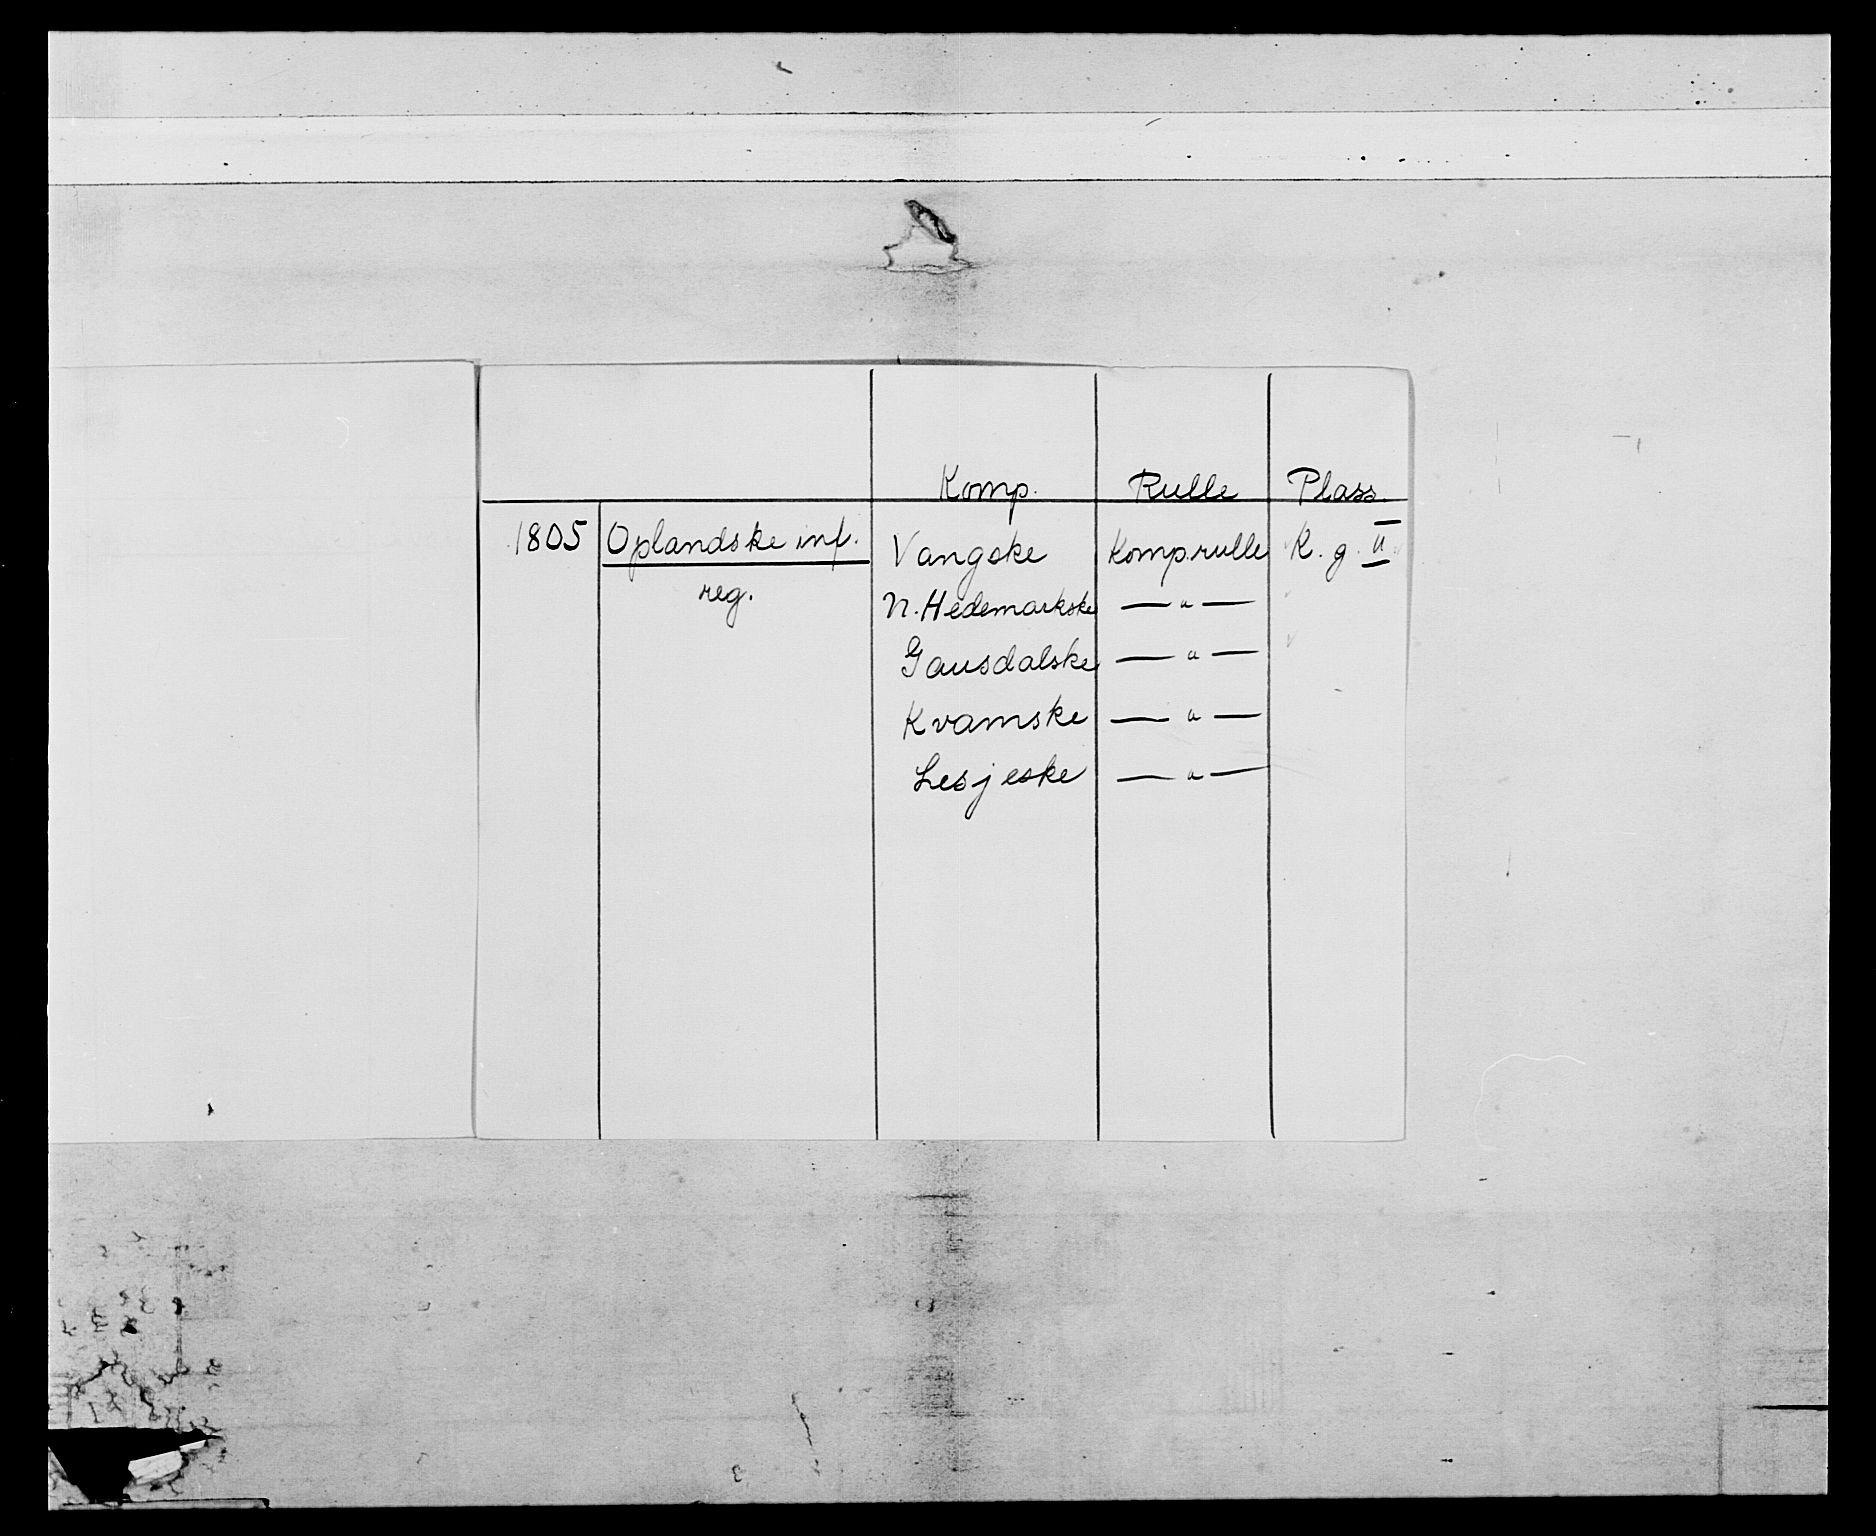 Komp. Rulle Plass.
1805 Oplandske inf. Vangske Komp.rulle K. g. II
reg. N. Hedemarkske — " —
Gausdalske — " —
Kvamske — " —
Lesjeske — " —